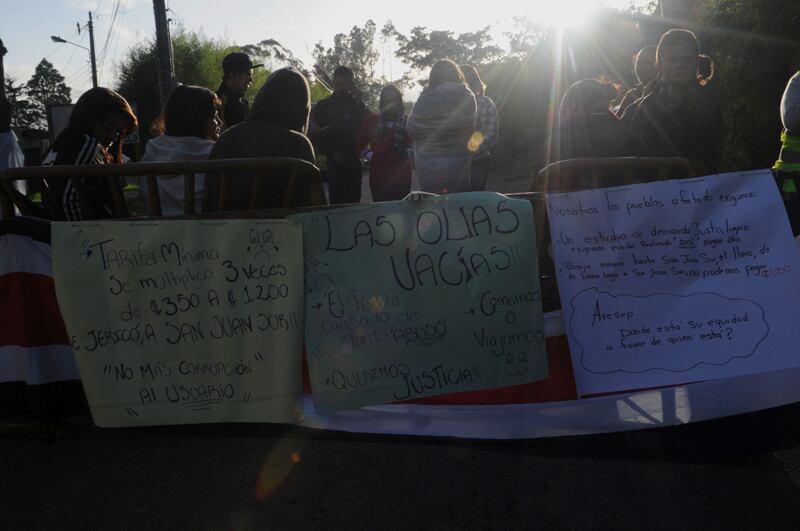 Tarifa Mínima
Se multiplico 3 veces
de ₡350 A ₡1200
DE JERICÓ A SAN JUAN SUR!!
"NO MÁS CORRUPCIÓN"
Al USUARIO
¡¡LAS OLLAS
VACÍAS!!
"El Pueblo
cansado de
Tanto "ABUSO"
QUEREMOS JUSTICIA!!
"Comemos
O
Viajamos"
Nosotros los pueblos afectado exigimos:
Un estudio de demanda Justo,
exigimos estudio Realizado
Pasaje minimo hasta San Juan Sur, el llano, de
a San Juan Sur no podemos pagar
₡1200
Aresep
Donde está su equidad
a favor de quien está?